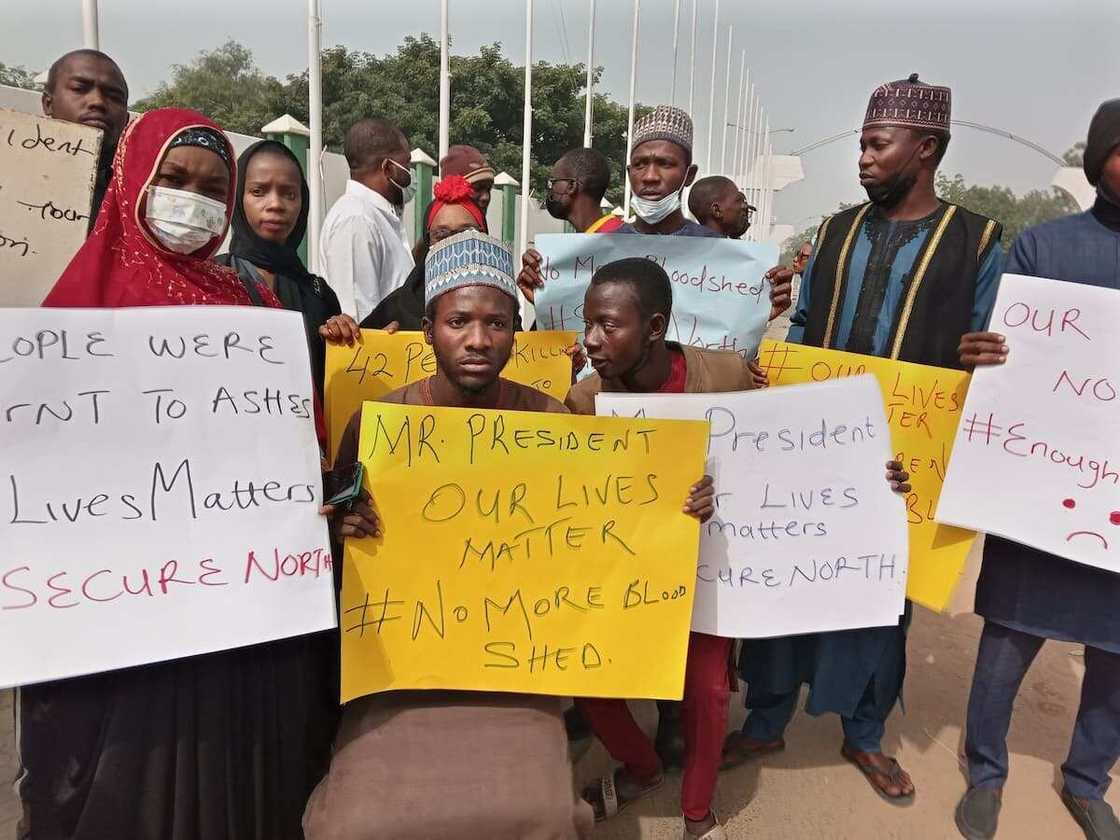 ident
EOPLE WERE
RNT TO ASHES
LIVES MATTERS
SECURE NORTH
42
KILL
TO
No More Bloodshed
North
MR. PRESIDENT
OUR LIVES
MATTER
#NO MORE BLOOD
SHED.
President
LIVES
matters
CURE NORTH.
#OUR LIVES
TER
OUR
NO
#Enough